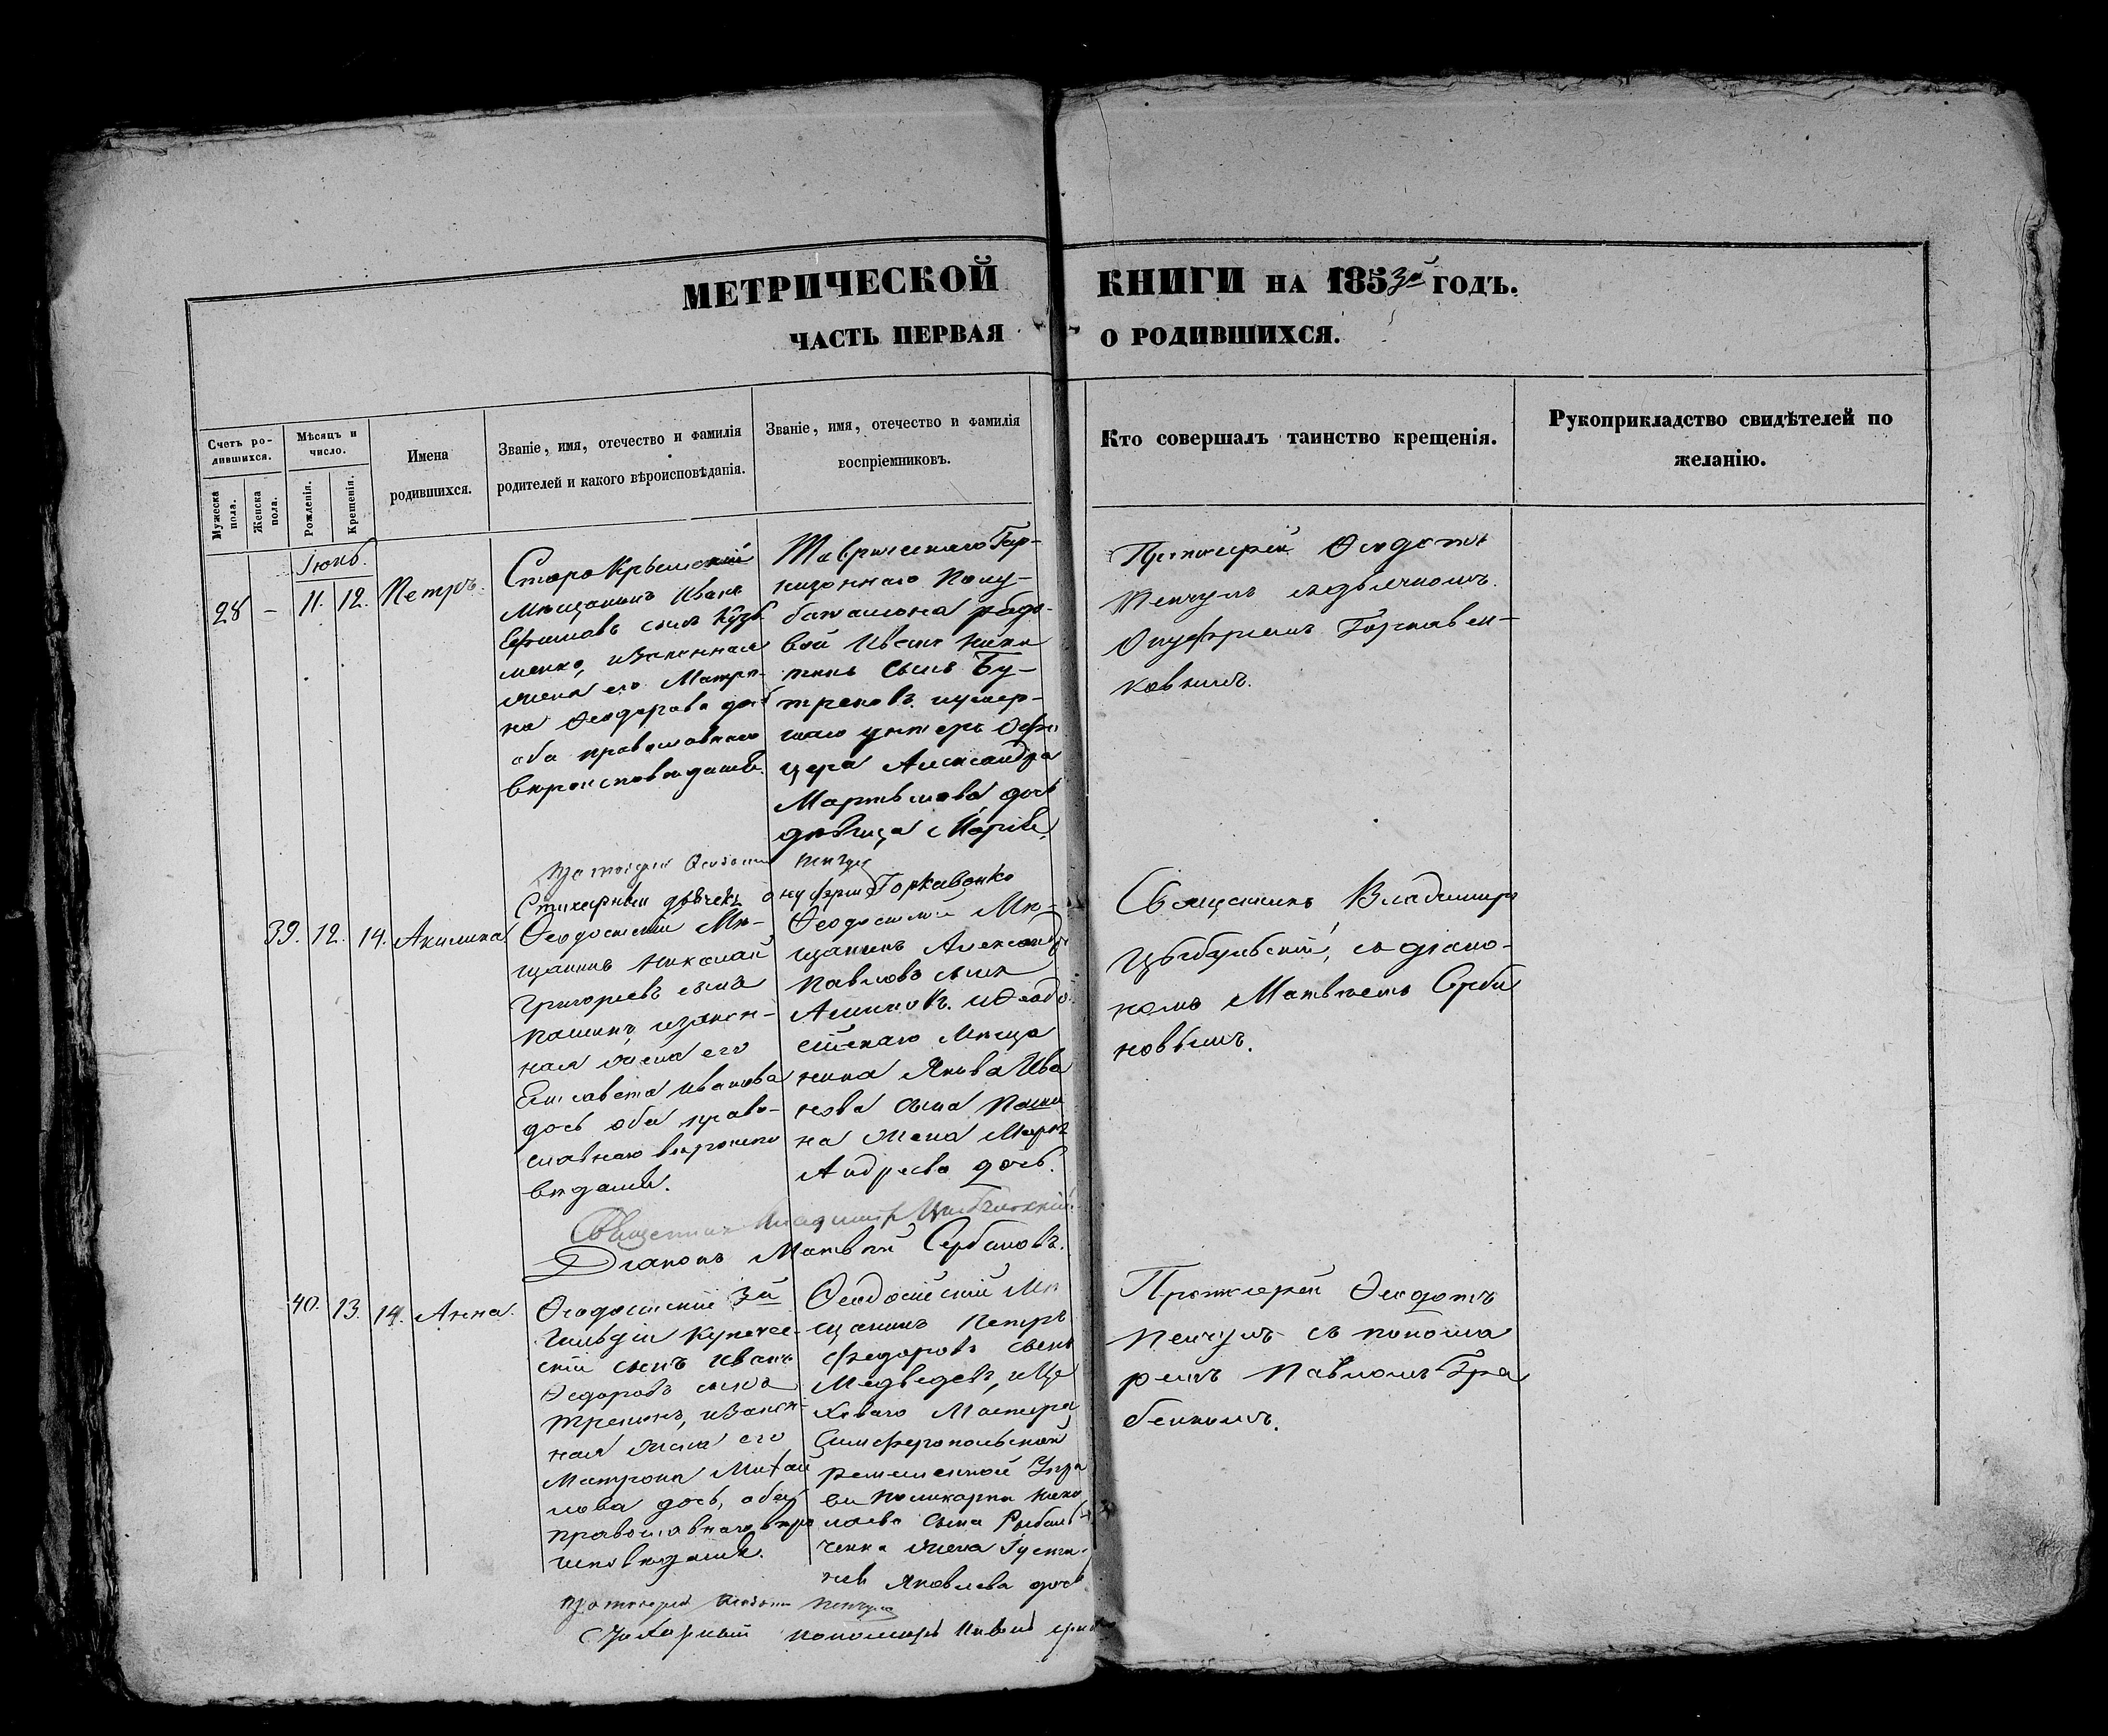 МЕТРИЧЕСКОЙ КНИГИ НА 1853й ГОДЪ.
ЧАСТЬ ПЕРВАЯ О РОДИВШИХСЯ.
Счетъ ро-
дившихся.
Мужеска пола.
Женска пола.
Мѣсяцъ и число.
Рожденія.
Крещенія.
Имена
родившихся.
Званіе, имя, отечество и фамилія
родителей и какого вѣроисповѣданія.
Званіе, имя, отечество и фамилія
воспріемниковъ.
Кто совершалъ таинство крещенія.
Рукоприкладство свидѣтелей по
желанію.
Іюнь.
28 – 11. 12. Петръ.
СтароКрымскій
мѣщанинъ Иванъ
Ефимовъ сынъ Кузь
менко, изаконная
жена его Матро-
на Ѳеодорова дочь
оба православнаго
вѣроисповѣданія.
Таврическаго Гар-
низоннаго Полу-
баталіона рядо-
вой Иванъ Ники
тинъ сынъ Бу-
треновъ, иумер-
шаго унтеръ Офи
цера Александра
Мартынова дочь
дѣвица Марія.
Протоіерей Ѳеодотъ
Пенчулъ издьячкомъ
Онуфріемъ Горкавен-
ковымъ.
Протоіерей Ѳеодотъ Пенчулъ
Стихарный дьячекъ Онуфрій Горкавенко
39. 12. 14. Акилина.
Ѳеодосійскій Мѣ-
щанинъ Николай
Григорьевъ сынъ
Пашинъ, изакон-
ная жена его
Елисавета Иванова
дочь оба право-
славнаго вѣроиспо
вѣданія.
Ѳеодосійскій Мѣ-
щанинъ Александръ
Павловъ сынъ
иѲеодо-
сійскаго Мѣща
нина Якова Ива
нова сына Паши
на жена Марѳа
Андреева дочь.
Священникъ Владимиръ
Цыбульскій, съ діако-
номъ Матвѣемъ Серби
новымъ.
Священникъ Владимиръ Цыбульскій.
Діаконъ Матвѣй Сербиновъ.
40. 13. 14. Анна.
Ѳеодосійскій 3й
Гильдіи Купече-
скій сынъ Иванъ
Ѳедоровъ сынъ
изакон-
ная жена его
Матрона Михай
лова дочь, оба
православнаго вѣро
исповѣданія.
Ѳеодосійскій Мѣ
щанинъ Петръ
Ѳедоровъ сынъ
Медведевъ, иЦе
ховаго Мастера
Симферопольской
ремесленной Упра
вы Поликарпа Нико
лаева сына Рыбаль
ченка жена Іусти-
нія Яковлева дочь
Протоіерей Ѳеодотъ
Пенчулъ съ понома
ремъ Павломъ Гра
бенкомъ.
Протоіерей Ѳеодотъ Пенчулъ
Стихарный пономарь Павелъ